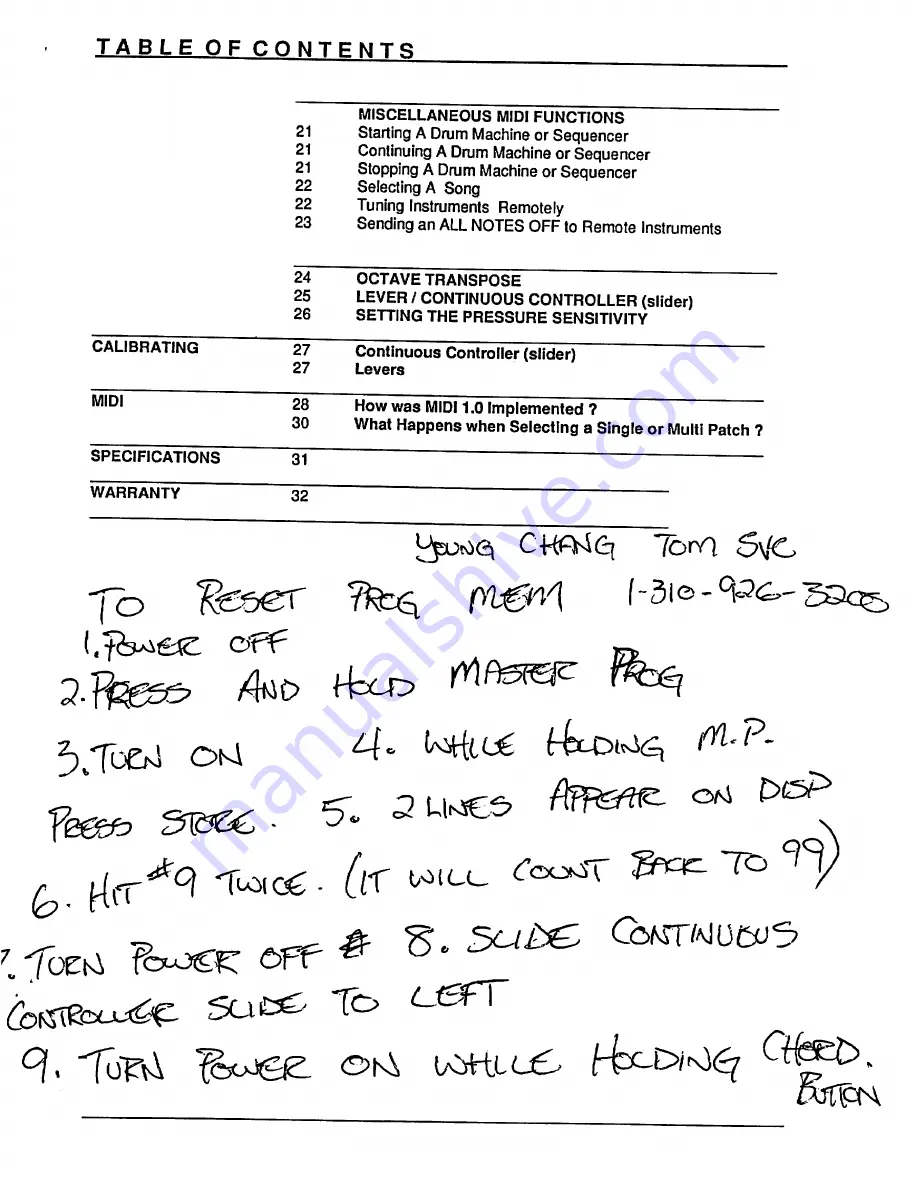 TABLE OF CONTENTS
MISCELLANEOUS MIDI FUNCTIONS
21 Starting A Drum Machine or Sequencer
21 Continuing A Drum Machine or Sequencer
21 Stopping A Drum Machine or Sequencer
22 Selecting A Song
22 Tuning Instruments Remotely
23 Sending an ALL NOTES OFF to Remote Instruments
24 OCTAVE TRANSPOSE
25 LEVER / CONTINUOUS CONTROLLER (slider)
26 SETTING THE PRESSURE SENSITIVITY
CALIBRATING 27 Continuous Controller (slider)
27 Levers
MIDI 28 How was MIDI 1.0 Implemented ?
30 What Happens when Selecting a Single or Multi Patch ?
SPECIFICATIONS 31
WARRANTY 32
YOUNG CHANG TOM SVC
TO RESET PROG MEM 1-310-926-3205
1. POWER OFF
2. PRESS AND HOLD MASTER PROG
3. TURN ON 4. WHILE HOLDING M.P.
PRESS STORE. 5. 2 LINES APPEAR ON DISP
6. HIT #9 TWICE. (IT WILL COUNT BACK TO 99)
7. TURN POWER OFF 8. SLIDE CONTINUOUS
CONTROLLER SLIDE TO LEFT
9. TURN POWER ON WHILE HOLDING CHORD.
BUTTON
manualshive.com